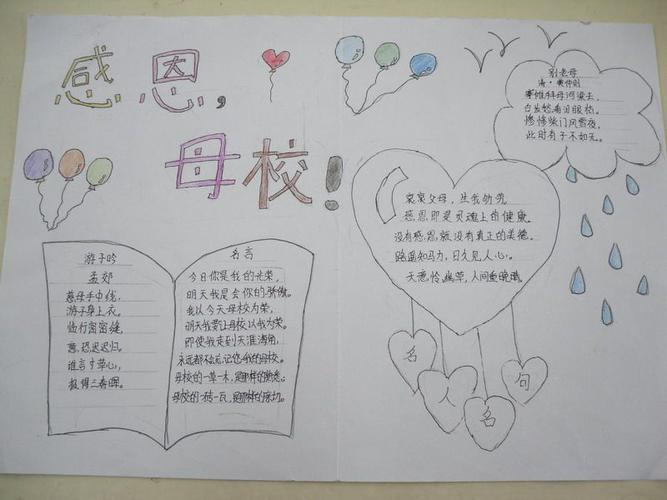 感恩，
母校！
别老母
清·黄仲则
搴帷拜母河梁去，
白发愁看泪眼枯。
惨惨柴门风雪夜，
此时有子不如无。
哀哀父母，生我劬劳
感恩即是灵魂上的健康。
没有感恩就没有真正的美德。
路遥知马力，日久见人心。
天意怜幽草，人间重晚晴
名
人
名
句
游子吟
孟郊
慈母手中线，
游子身上衣。
临行密密缝，
意恐迟迟归。
谁言寸草心，
报得三春晖。
名言
今日你是我的光荣，
明天我是会你的骄傲。
我以今天母校为荣，
明天我要让母校以我为荣。
即使我走到天涯海角，
永远都不会忘记您我的母校。
母校的一草一木，是那样的熟悉；
母校的一砖一瓦，是那样的亲切。